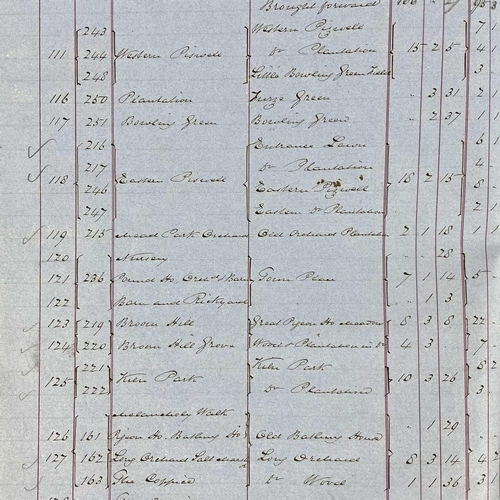 Brought forward 106 - 29
243 Western Pizwell 7
111 244 Western Pizwell Do Plantation 15 2 5 4 1
248 Little Bowling Green Field 3
116 250 Plantation Furze Green - 3 31 2 1
117 251 Bowling Green Bowling Green - 2 37 1 1
216 Entrance Lawn 6 1
217 Do Plantation 4
118 246 Eastern Pizwell Eastern Pizwell 18 2 15 8
247 Eastern Do Plantation 2 1
119 215 Mead Park Orchard Old Orchard Plantation 2 1 18 1 1
120 Nursery - - 28
121 236 Pound Ho. Orchd & Barn Town Place 7 1 14 5
122 Barn and Rickyard - 1 3
123 219 Broom Hill Great Pigeon Ho. Meadow 8 3 8 22
124 220 Broom Hill Grove Wood & Plantation in Do 4 3 7
221 Kiln Park 8 2
125 222 Kiln Park Do Plantation 10 3 26 3
Melancholy Walk - 1 29
126 161 Pigeon Ho. Bathing Ho. Old Bathing House
127 162 Long Orchard Salt Marsh Long Orchard 8 3 14 4 2
163 The Coppice Do Wood 1 1 36 3 1